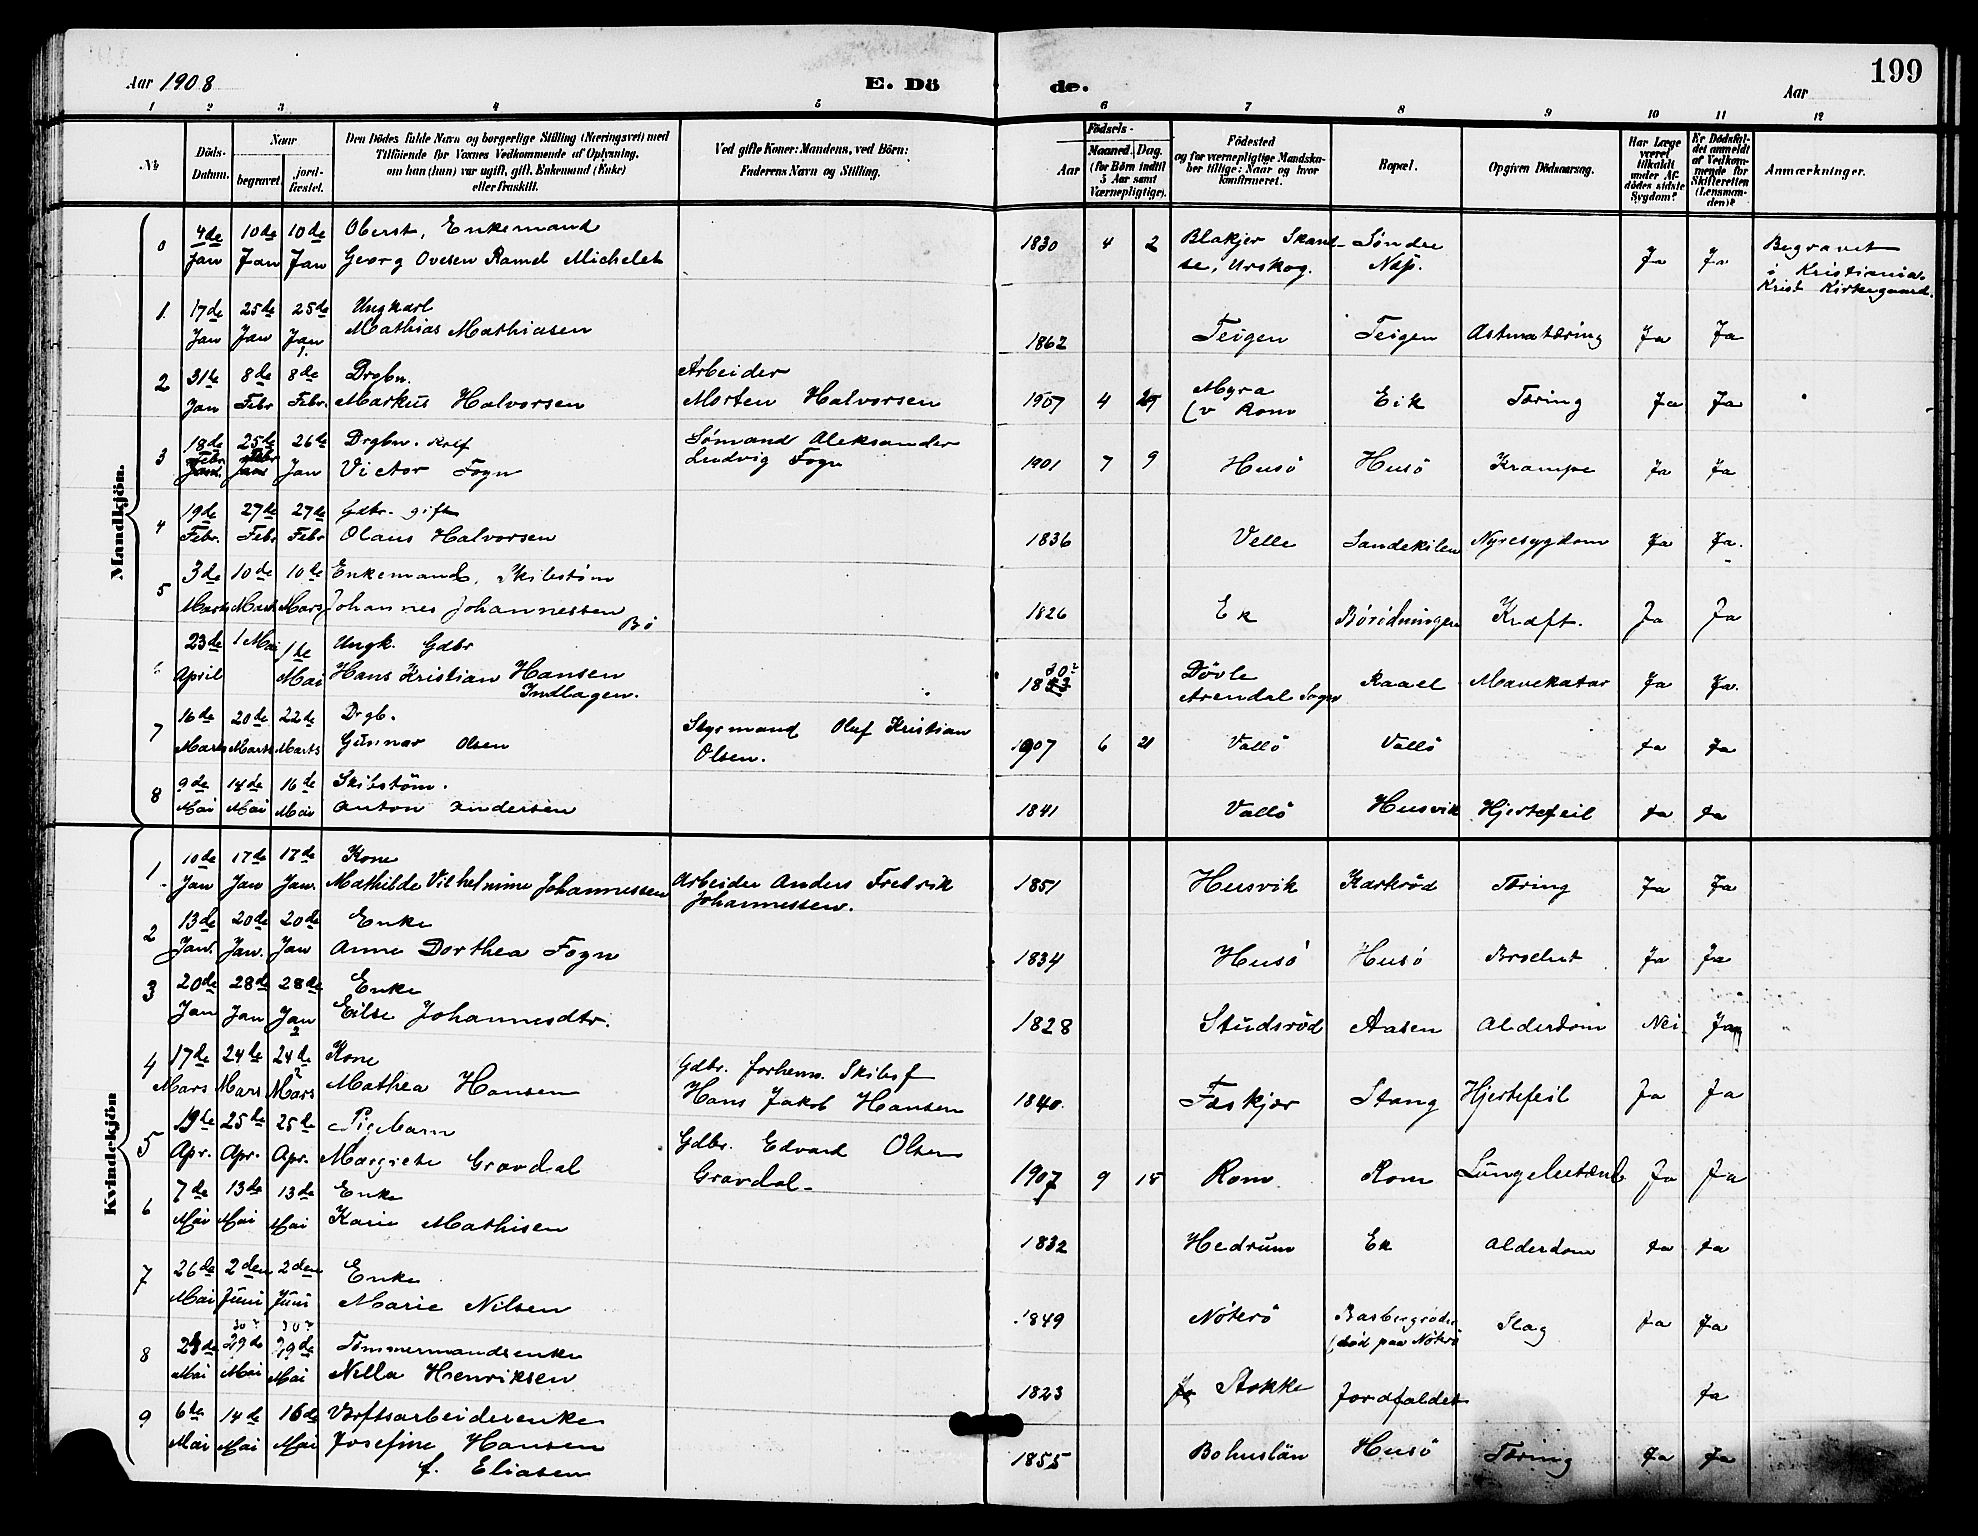 199
Aar 1908
E. Dö de.
Aar
1 2 3 4 5 6 7 8 9 10 11 12
№
Döds-Datum.
Naar
begravet.
jord-fæstet.
Den Dödes fulde Navn og borgerlige Stilling (Næringsvei) med
Tilföiende for Voxnes Vedkommende af Oplysning,
om han (hun) var ugift, gift, Enkemand (Enke)
eller fraskilt.
Ved gifte Koner: Mandens, ved Börn:
Faderens Navn og Stilling.
Födsels-
Aar
Maaned. Dag.
(for Börn indtil
5 Aar samt
Værnepligtige).
Födested
og for værnepligtige Mandska-
ber tillige: Naar og hvor
konfirmeret.
Bopæl.
Opgiven Dödsaarsag.
Har Læge
været
tilkaldt
under Af-
dödes sidste
Sygdom?
Er Dödsfal-
det anmeldt
af Vedkom-
mende for
Skifteretten
(Lensman-
den)?
Anmærkninger.
Mandkjön.
0 4de 10de 10de Oberst, Enkemand 1830 4 2 Blakjer Skand- Søndre Ja Ja Begravet
Jan Jan Jan Georg Ovesen Ramd Michelet se, Urskog. Næs. i Kristiania.
Krist Kirkegaard.
1. 17de 25de 25de Ungkarl
Jan Jan Jan Mathias Mathiasen 1862 Teigen Teigen Astmatæring Ja Ja
2 31te 8de 8de Drgbn. Arbeider
Jan Febr Febr. Markus Halvorsen Morten Halvorsen 1907 4 Myra Eik Tæring Ja Ja
(v Rom
3 18de 25de 26de Drgbn. Sømand Aleksander
Febr Febr Jan Victor Fogn Ludvig Fogn 1901 7 9 Husö Husö Krampe Ja Ja
4 19de 27de 27de Gdbr. gift
Febr. Febr Febr Olaus Halvorsen 1836 Velle Sandekilen Nyresygdom Ja Ja.
5 3de 10de 10de Enkemand, Skibstøm
Marts Marts Mars Johannes Johannessen Bö 1826 Ek Kræft. Ja Ja
6 23de 1 Mai 1te Ungk. Gdbr
April Mai Hans Kristian Hansen 18 30? Døvle Raael Mavekatar Ja Ja.
Indlagen. Arendal Sogn
7 16de 20de 22de Drgb. Styrmand Oluf Kristian
Marts Marts Marts Gunnar Olsen Olsen. 1907 6 21 Vallö Vallö Ja Ja
8 9de 14de 16de Skibstøm.
Mai Mai Mai Anton Andersen 1841 Vallö Husvik Hjertefeil Ja Ja
Kvindekjön
1. 10de 17de 17de Kone
Jan Jan Jan. Mathilde Vilhelmine Johannessen Arbeider Anders Fredrik 1851 Husvik Karkröd Tæring Ja Ja
Johannessen.
2 13de 20de 20de Enke
Jan. Jan. Jan Anne Dorthea Fogn 1834 Husö Husö Ja Ja
3 20de 28de 28de Enke
Jan Jan Jan Eilse Johannesdtr. 1828 Studsröd Aasen Alderdom Nei Ja
4 17de 24de 24de Kone Gdbr. forhenv. Skibsf
Mars Mars Mars Mathea Hansen Hans Jakob Hansen 1840. Faskjær Stang Hjertefeil Ja Ja
5 19de 25de 25de Pigebarn Gdbr. Edvard Olsen
Apr. Apr. Apr. Margrete Gravdal Gravdal 1907 9 15 Rom Rom Ja Ja
6 7de 13de 13de Enke
Mai Mai Mai Karie Mathisen 1832 Hedrum Ek Alderdom Ja Ja
7 26de 2den 2den Enke
Mai Juni Juni Marie Nilsen 1849 Nöterö Basbergröder Slag Ja Ja
(död paa Nöterö
30? 30?
8 24de 29de 29de Tømmermandsenke
Mai Mai Mai Nilla Henriksen 1823 Stokke Jordfaldet Ja
9 6te 14de 16de Værftsarbeiderenke
Mai Mai Mai Josefine Hansen 1855 Bohuslän Husö Tæring Ja Ja
f. Eliasen